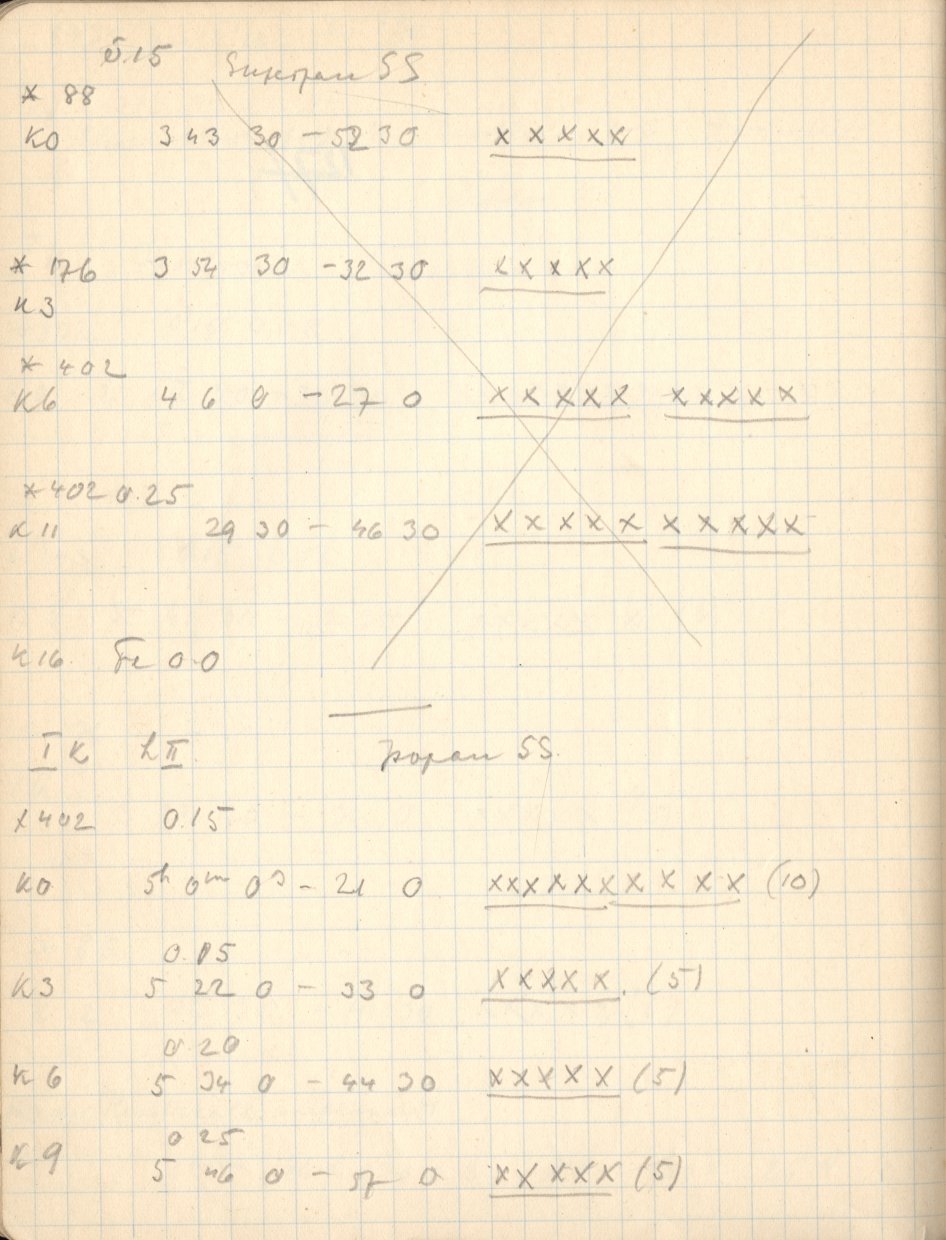 0.15 SS
* 88
K0 3 43 30 - 52 30 x x x x x
* 176 3 54 30 - 32 30 x x x x x
K3
* 402
K6 4 6 0 - 27 0 x x x x x x x x x x
* 402 0.25
K11 29 30 - 46 30 x x x x x x x x x x
K16 Fe 0.0
I K L II SS.
* 402 0.15
K0 5h 0m 0s - 21 0 x x x x x x x x x x (10)
0.15
K3 5 22 0 - 33 0 x x x x x . (5)
0.20
K6 5 34 0 - 44 30 x x x x x (5)
0 25
K9 5 46 0 - 57 0 x x x x x (5)